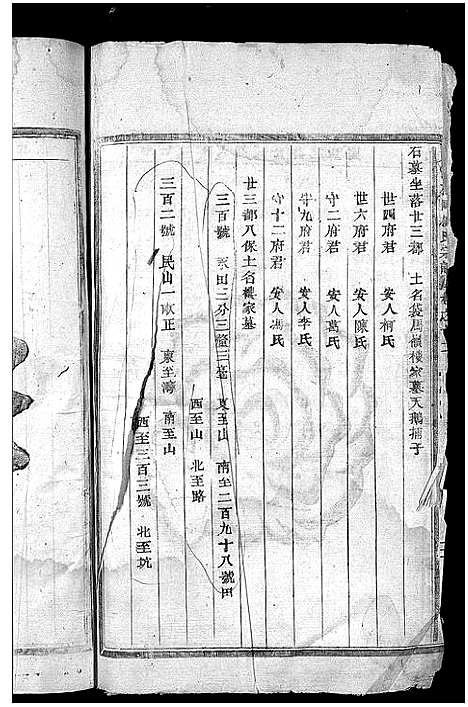 石墓坐落廿三都 土名袋馬嶺樓家墓天鵝捕子
世四府君 安人柯氏
世六府君 安人陳氏
守二府君 安人葛氏
守九府君 安人李氏
守十二府君 安人馮氏
廿三都八保土名樓家墓
三百號 永田三分三釐三毫 東至山 南至二百九十八號田
西至山 北至路
三百二號 民山一畝正 東至灣 南至山
西至三百三號 北至坑